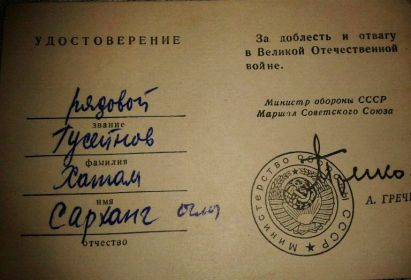 УДОСТОВЕРЕНИЕ
рядовой
звание
Гусейнов
фамилия
Хатам
имя
Сарханг оглы
отчество
За доблесть и отвагу
в Великой Отечественной
войне.
Министр обороны СССР
Маршал Советского Союза
А. ГРЕЧ
Министерство обороны СССР